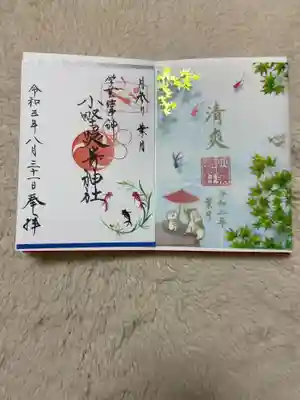 清爽
令和三年
葉月
月参り 葉月
小野照崎神社
令和三年八月三十一日 奉拝